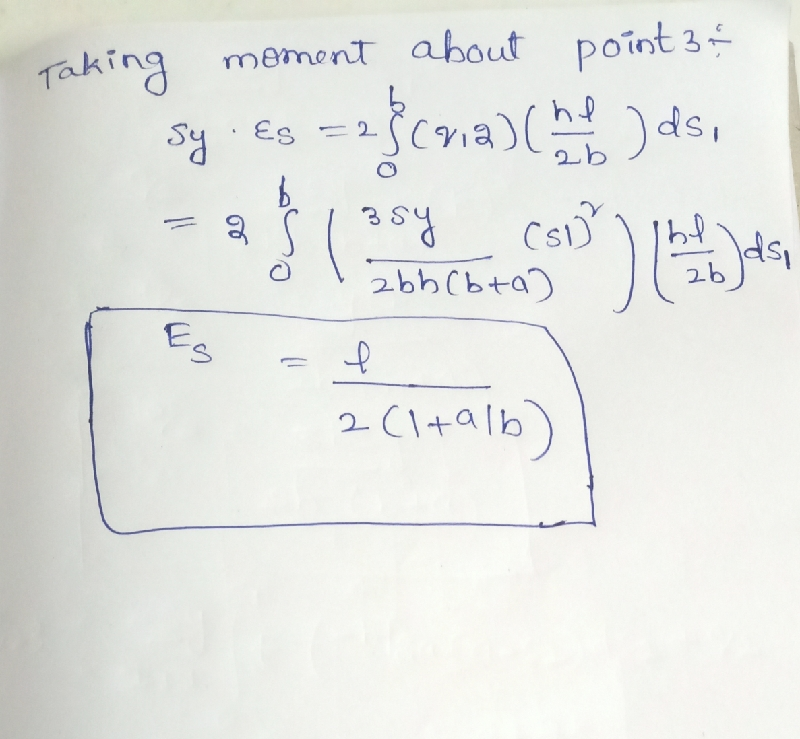 Taking moment about point 3 ÷
Sy · Es = 2 ∫₀ᵇ (q1,2) (hl/2b) ds1
= 2 ∫₀ᵇ (3Sy/2bh(b+a) (s1)²) (hl/2b) ds1
Es = l/2(1+a/b)